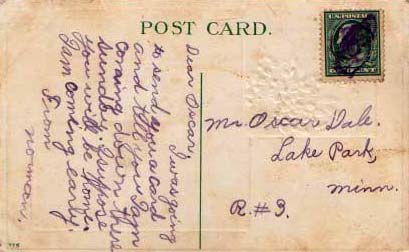 POST CARD.
U.S. POSTAGE
Dear Oscar
I was going
to send you a card
and tell you I am
coming down there
Sunday. Suppose
you will be home.
I am coming early.
From
Norman.
Mr. Oscar Dale.
Lake Park,
Minn.
R. #3.